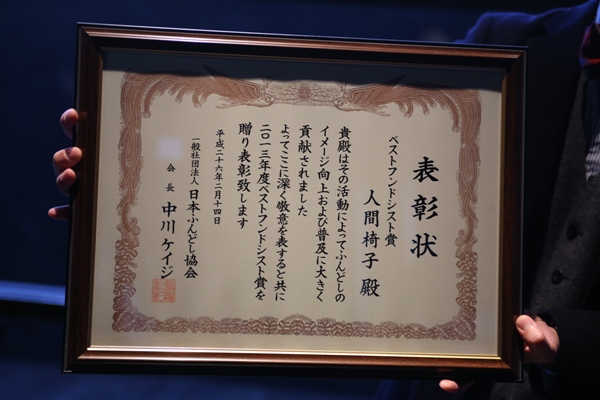 表彰状
ベストフンドシスト賞
人間椅子 殿
貴殿はその活動によってふんどしの
イメージ向上および普及に大きく
貢献されました
よってここに深く敬意を表すると共に
二〇一三年度ベストフンドシスト賞を
贈り表彰致します
平成二十六年二月十四日
一般社団法人 日本ふんどし協会
会長 中川ケイジ